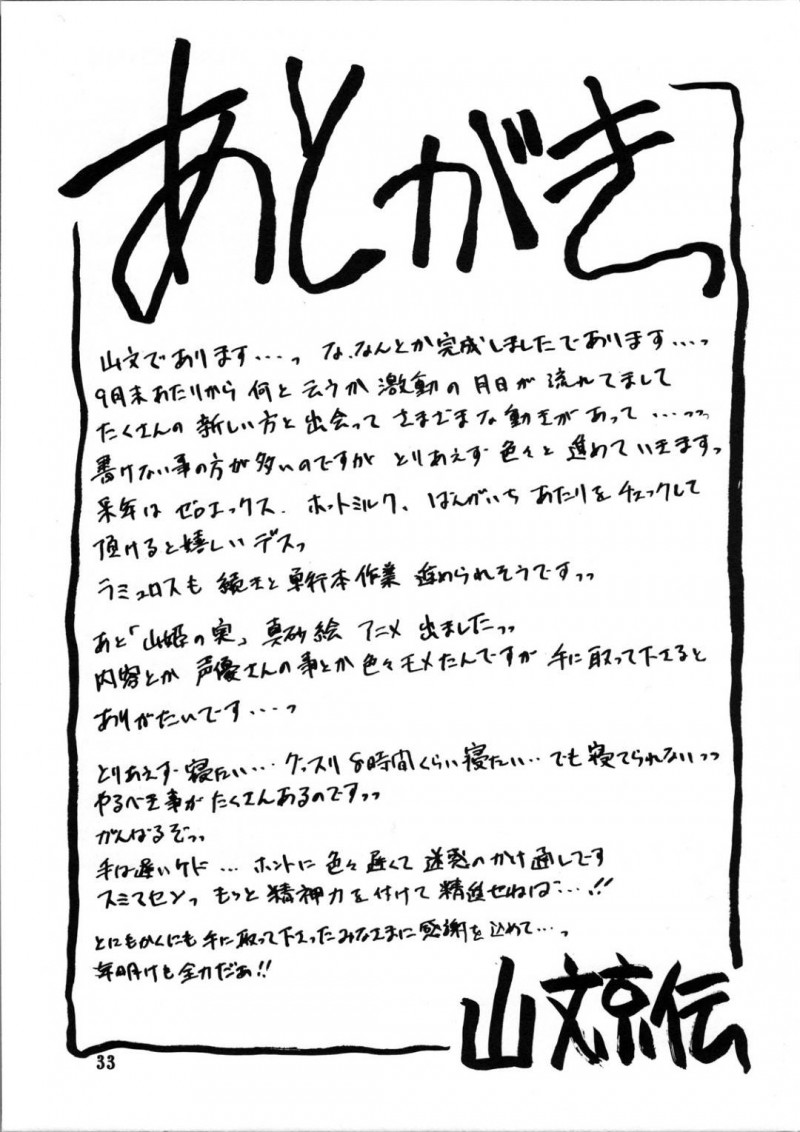 あとがき
山文であります・・・っ な、なんとか完成しましたであります・・・っ
9月末あたりから 何と云うか 激動の月日が流れてまして
たくさんの新しい方と出会って さまざまな動きがあって ・・・っっ
書けない事の方が多いのですが とりあえず色々と進めていきますっ
来年は ゼロエックス、ホットミルク、ばんがいち あたりをチェックして
頂けると嬉しいデスっ
ラミュロスも 続きと単行本作業 進められそうですっっ
あと「山姫の実」真砂絵 アニメ 出ましたっっ
内容とか 声優さんの事とか色々モメたんですが 手に取って下さると
ありがたいです・・・・っ
とりあえず寝たい・・・グッスリ8時間くらい寝たい・・・でも寝てられないっっ
やるべき事が たくさんあるのですっっ
がんばるぞっっ
手は遅いケド ・・・ ホントに色々遅くて 迷惑のかけ通しです
スミマセンっ もっと精神力を付けて精進せねば・・・・!!
とにもかくにも 手に取って下さったみなさまに感謝を込めて・・・っ
年明けも全力だぁ!!
山文京伝
33